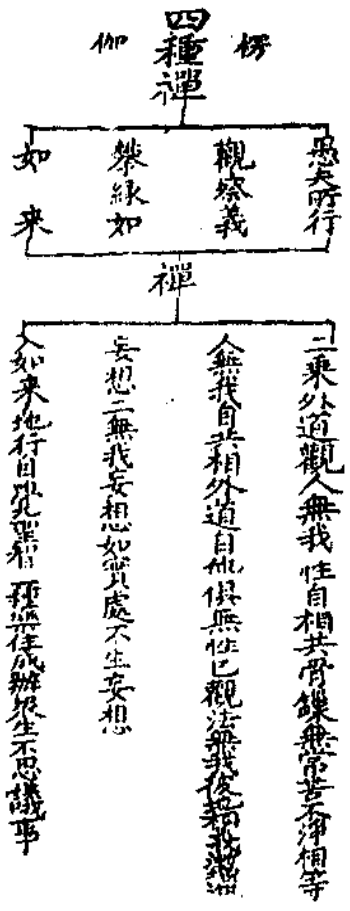 楞伽
四種禪
愚夫所行
觀察義
攀緣如
如来
禪
二乘外道觀人無我性自相共骨鏁無常苦不淨相等
人無我自共相外道自他俱無性已觀法無我彼地相義漸增
妄想二無我妄想如實處不生妄想
入如来地行自覺聖智三種樂住成辦衆生不思議事